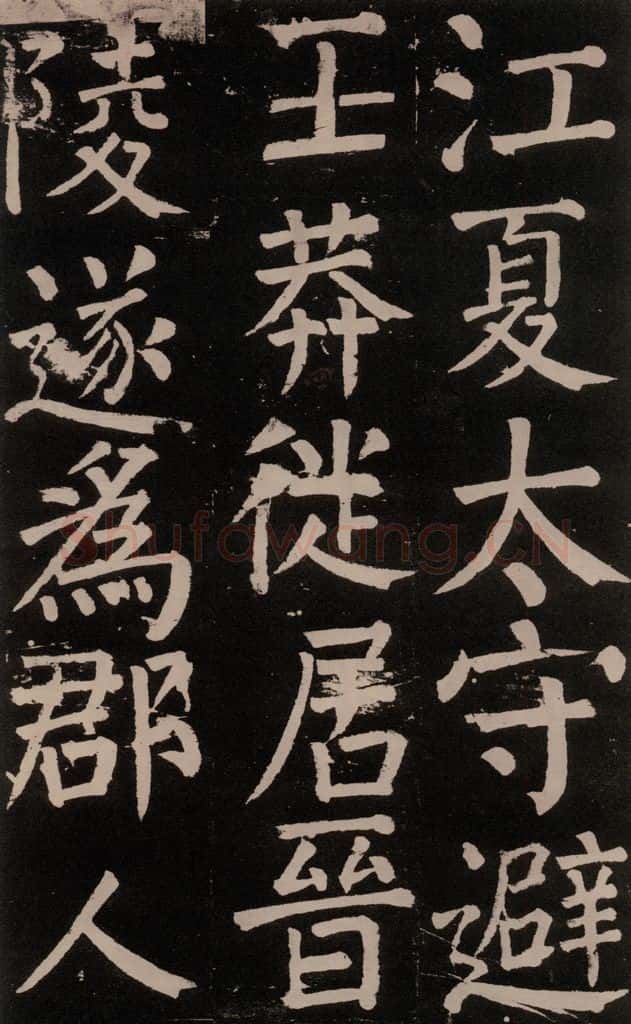 江夏太守避
王莽徙居晉
陵遂為郡人
Shufawang.CN